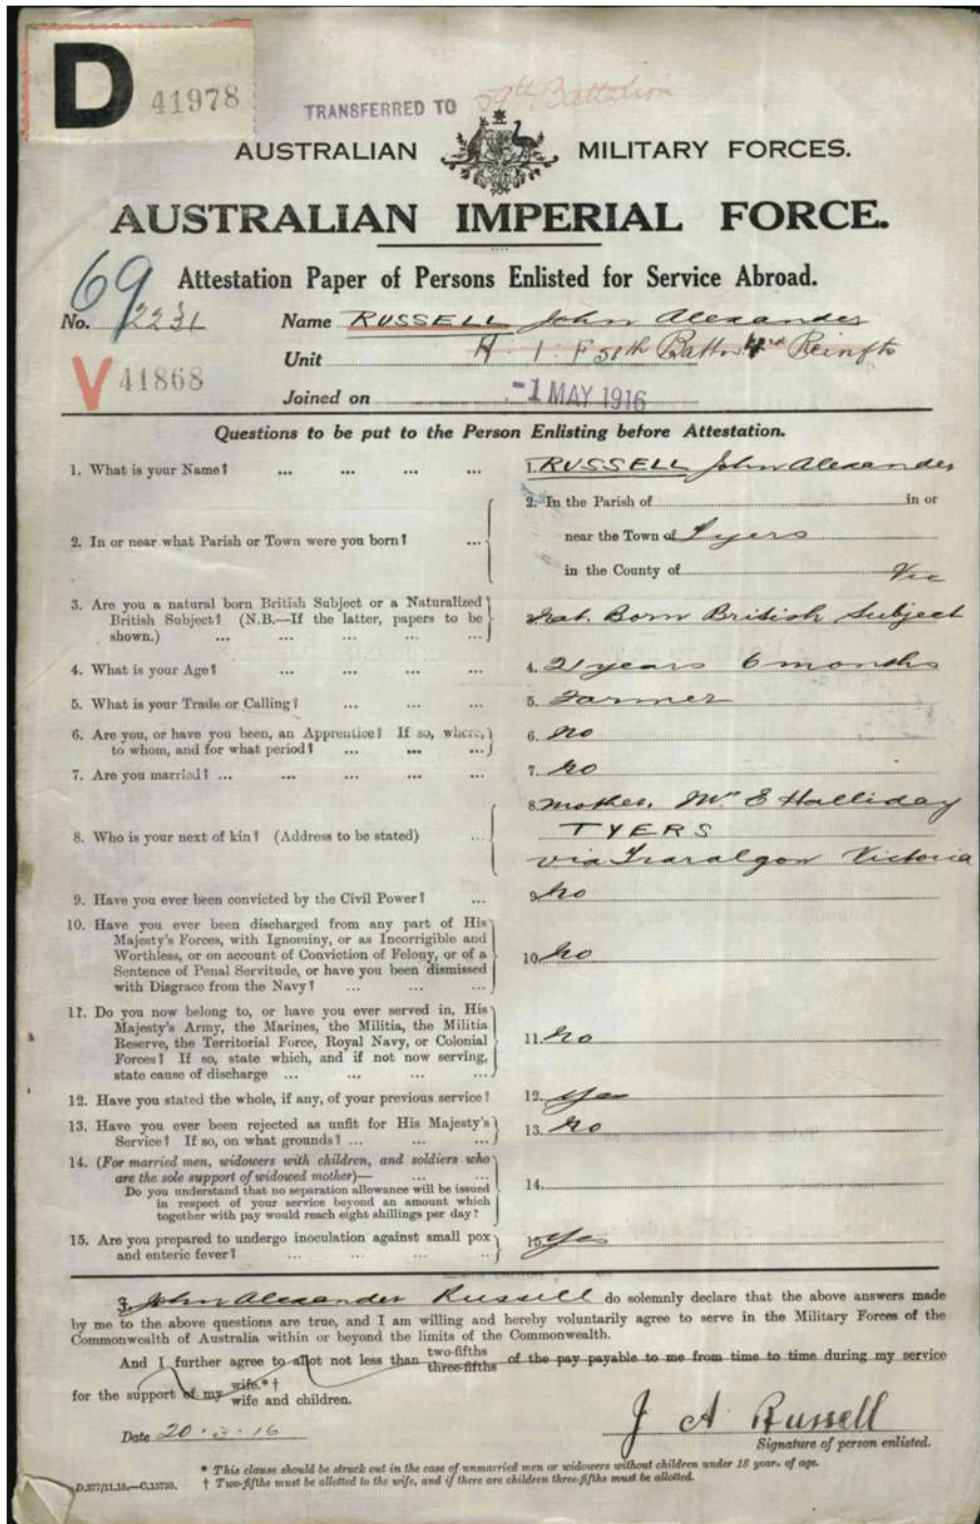 D 41978
TRANSFERRED TO 59th Battalion
AUSTRALIAN MILITARY FORCES.
AUSTRALIAN IMPERIAL FORCE.
69
Attestation Paper of Persons Enlisted for Service Abroad.
No. 2231 Name RUSSELL John Alexander
Unit Battn Reinfts
V 41868
Joined on -1 MAY 1916
Questions to be put to the Person Enlisting before Attestation.
1. What is your Name? ... ... ... ... 1. RUSSELL John Alexander
2. In the Parish of in or
2. In or near what Parish or Town were you born? ... near the Town of Tyers
in the County of Vic
3. Are you a natural born British Subject or a Naturalized
British Subject? (N.B.—If the latter, papers to be Nat. Born British Subject
shown.) ... ... ... ...
4. What is your Age? ... ... ... ... 4. 21 years 6 months
5. What is your Trade or Calling? ... ... ... 5. Farmer
6. Are you, or have you been, an Apprentice? If so, where, 6. No
to whom, and for what period? ... ... ...
7. Are you married? ... ... ... ... ... 7. No
8. Mother, Mrs E Halliday
8. Who is your next of kin? (Address to be stated) ... TYERS
via Traralgon Victoria
9. Have you ever been convicted by the Civil Power? ... 9. No
10. Have you ever been discharged from any part of His
Majesty's Forces, with Ignominy, or as Incorrigible and
Worthless, or on account of Conviction of Felony, or of a 10. No
Sentence of Penal Servitude, or have you been dismissed
with Disgrace from the Navy? ... ... ...
11. Do you now belong to, or have you ever served in, His
Majesty's Army, the Marines, the Militia, the Militia
Reserve, the Territorial Force, Royal Navy, or Colonial 11. No
Forces? If so, state which, and if not now serving,
state cause of discharge ... ... ... ...
12. Have you stated the whole, if any, of your previous service? 12. Yes
13. Have you ever been rejected as unfit for His Majesty's 13. No
Service? If so, on what grounds? ... ... ...
14. (For married men, widowers with children, and soldiers who
are the sole support of widowed mother)— ... ...
Do you understand that no separation allowance will be issued 14.
in respect of your service beyond an amount which
together with pay would reach eight shillings per day?
15. Are you prepared to undergo inoculation against small pox 15. Yes
and enteric fever? ... ... ... ...
I, John Alexander Russell do solemnly declare that the above answers made
by me to the above questions are true, and I am willing and hereby voluntarily agree to serve in the Military Forces of the
Commonwealth of Australia within or beyond the limits of the Commonwealth.
And I further agree to allot not less than two-fifths three-fifths of the pay payable to me from time to time during my service
for the support of my wife.*† wife and children.
Date 20.3.16 J A Russell
Signature of person enlisted.
* This clause should be struck out in the case of unmarried men or widowers without children under 18 years of age.
† Two-fifths must be allotted to the wife, and if there are children three-fifths must be allotted.
D.577/11.15.—C.15730.